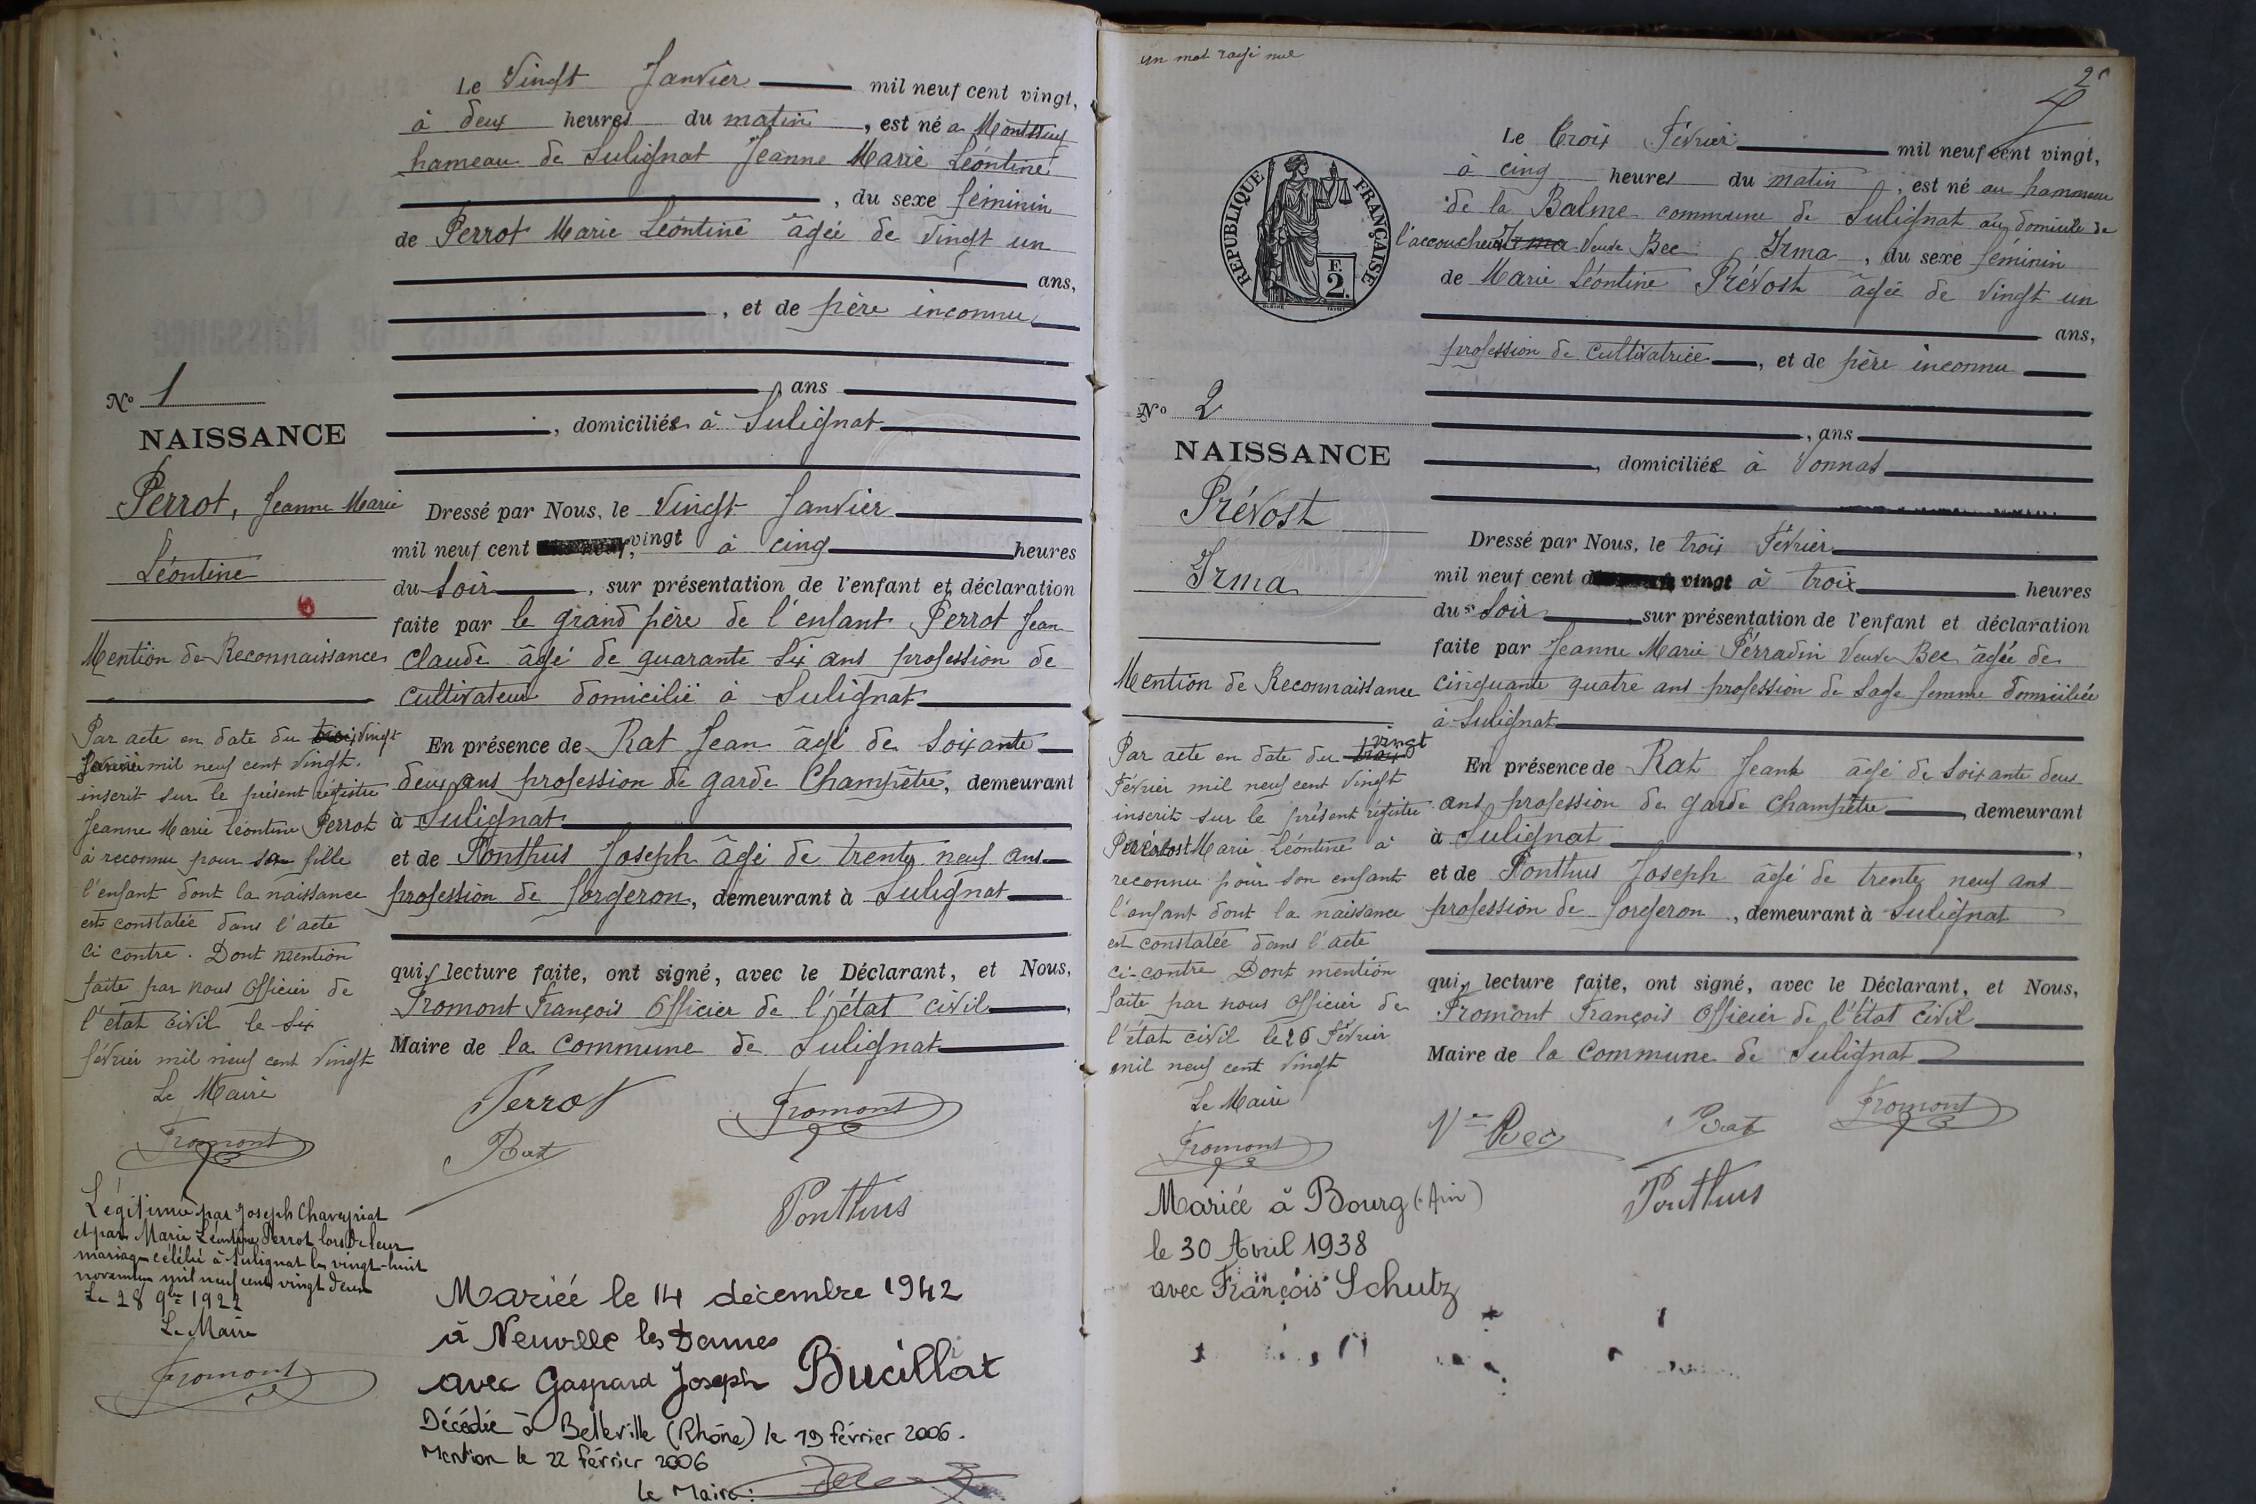 Le Vingt Janvier mil neuf cent vingt,
à deux heures du matin, est né a
hameau de Sulignat Jeanne Marie Léontine
, du sexe féminin
de Perrot Marie Léontine âgée de vingt un
ans,
, et de père inconnu
ans
, domiciliée à Sulignat
N° 1
NAISSANCE
Perrot, Jeanne Marie
Léontine
Dressé par Nous, le vingt Janvier
mil neuf cent vingt à cinq heures
du soir, sur présentation de l'enfant et déclaration
faite par le grand père de l'enfant Perrot Jean
Claude âgé de quarante six ans profession de
cultivateur domicilié à Sulignat
En présence de Rat Jean âgé de soixante
deux ans profession de garde Champêtre, demeurant
à Sulignat
et de Ponthus Joseph âgé de trente neuf ans
profession de forgeron, demeurant à Sulignat
qui, lecture faite, ont signé, avec le Déclarant, et Nous,
Fromont François Officier de l'état civil,
Maire de la Commune de Sulignat
Perrot
Fromont
Rat
Ponthus
Mention de Reconnaissance
Par acte en date du trois vingt
Janvier mil neuf cent vingt.
inscrit sur le présent registre
Jeanne Marie Léontine Perrot
à reconnu pour son fille
l'enfant dont la naissance
est constatée dans l'acte
ci contre. Dont mention
faite par nous Officier de
l'état civil le six
février mil neuf cent vingt
Le Maire
Fromont
Légitimée par Joseph Chaveyriat
et par Marie Léontine Perrot lors de leur
mariage célébré à Sulignat le vingt-huit
novembre mil neuf cent vingt deux
Le 28 9bre 1922
Le Maire
Fromont
Mariée le 14 décembre 1942
à Neuville les Dames
avec Gaspard Joseph Bucillat
Décédée à Belleville (Rhône) le 19 février 2006.
Mention le 22 février 2006
Le Maire:
un mot rayé nul
2
RÉPUBLIQUE FRANÇAISE
F.
2.
Le Trois Février mil neuf cent vingt,
à cinq heures du matin, est né au hammeau
de la Balme commune de Sulignat au domicile de
l'accoucheuse Irma Veuve Bec Irma, du sexe féminin
de Marie Léontine Prévost âgée de vingt un
ans,
profession de cultivatrice, et de père inconnu
, ans
, domiciliée à Vonnas
N° 2
NAISSANCE
Prévost
Irma
Dressé par Nous, le trois Février
mil neuf cent vingt à trois heures
du soir, sur présentation de l'enfant et déclaration
faite par Jeanne Marie Perradin Veuve Bec âgée de
cinquante quatre ans profession de sage femme domiciliée
à Sulignat
En présence de Rat Jean âgé de soixante deux
ans profession de garde champêtre, demeurant
à Sulignat,
et de Ponthus Joseph âgé de trente neuf ans
profession de forgeron, demeurant à Sulignat
qui, lecture faite, ont signé, avec le Déclarant, et Nous,
Fromont François Officier de l'état civil
Maire de la Commune de Sulignat
Vve Bec
Rat
Fromont
Ponthus
Mention de Reconnaissance
Par acte en date du trois vingt
Février mil neuf cent vingt
inscrit sur le présent registre
Prévost Marie Léontine à
reconnu pour son enfant
l'enfant dont la naissance
est constatée dans l'acte
ci-contre Dont mention
faite par nous Officier de
l'état civil le 26 Février
mil neuf cent vingt
Le Maire
Fromont
Mariée à Bourg (Ain)
le 30 Avril 1938
avec François Schutz